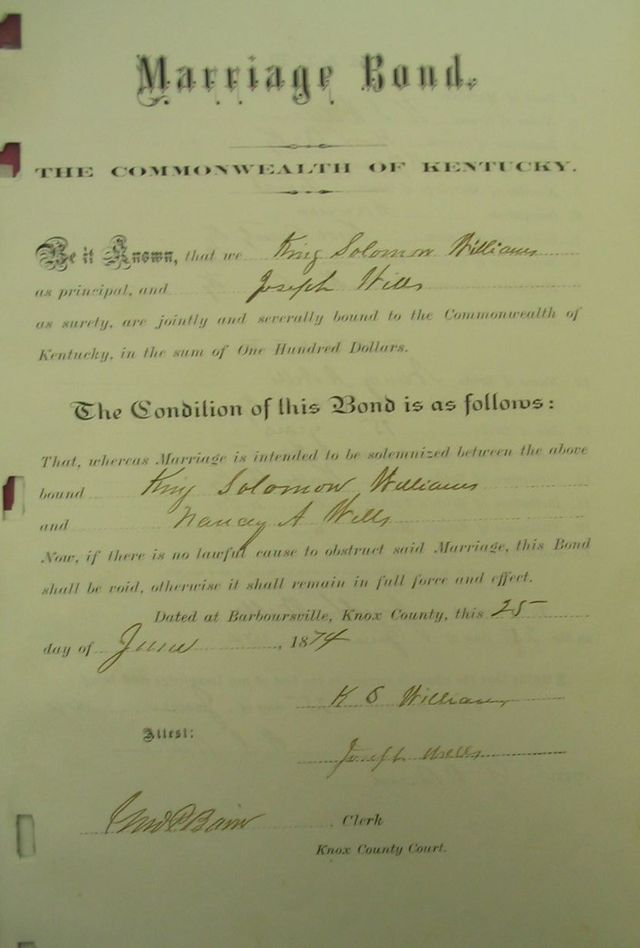 Marriage Bond.
THE COMMONWEALTH OF KENTUCKY.
Be it Known, that we King Solomon Williams
as principal, and Joseph Wills
as surety, are jointly and severally bound to the Commonwealth of
Kentucky, in the sum of One Hundred Dollars.
The Condition of this Bond is as follows:
That, whereas Marriage is intended to be solemnized between the above
bound King Solomon Williams
and Nancy A Wills
Now, if there is no lawful cause to obstruct said Marriage, this Bond
shall be void, otherwise it shall remain in full force and effect.
Dated at Barboursville, Knox County, this 25
day of June, 1874
K S Williams
Attest:
Joseph Wells
Clerk
Knox County Court.